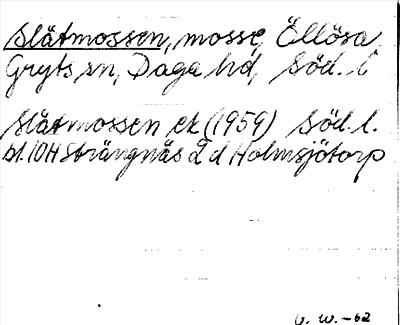 Slätmossen, mosse, Ëllösa
Gryts sn, Daga hd, Söd. l
Slätmossen ek (1959) Söd. l.
bl. 10H Strängnäs 2 d Holmsjötorp
G. W. -62